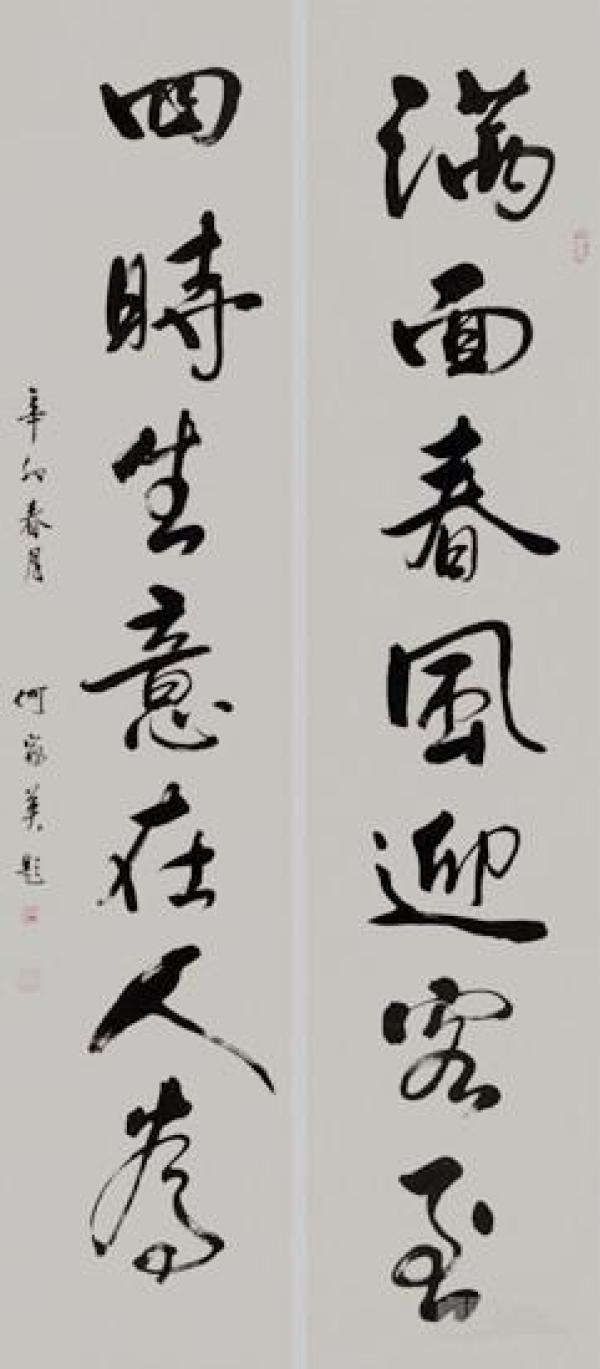 满面春風迎客至
四時生意在人為
辛卯春月 何家英題